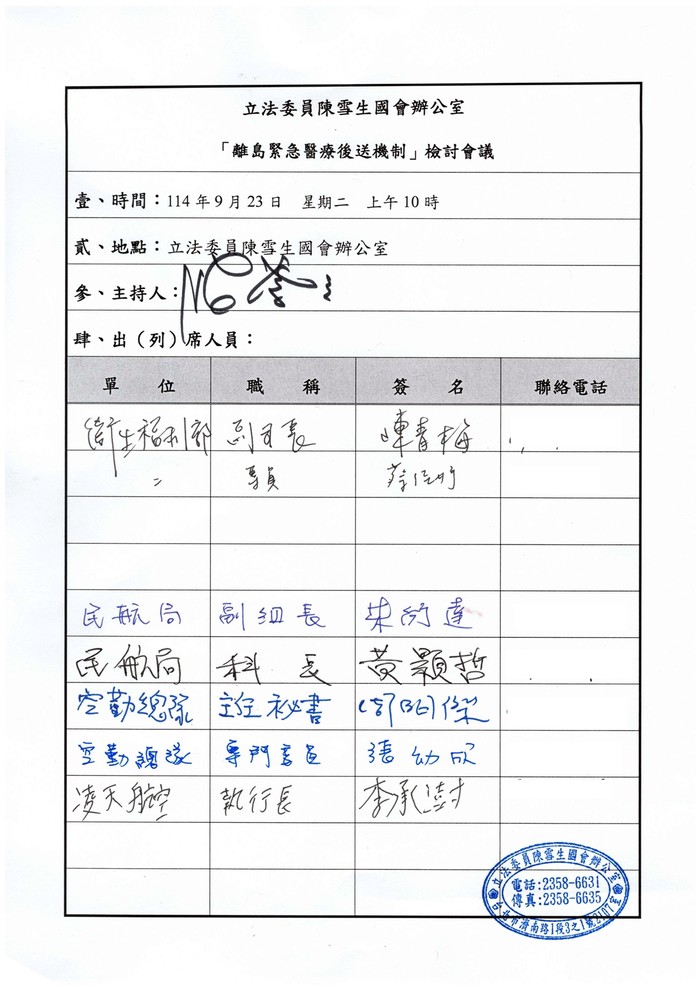 立法委員陳雪生國會辦公室
「離島緊急醫療後送機制」檢討會議
壹、時間：114年9月23日　星期二　上午10時
貳、地點：立法委員陳雪生國會辦公室
參、主持人：
肆、出（列）席人員：
單　位　職　稱　簽　名　聯絡電話
衛生福利部　副司長　陳青梅
〃　專員
民航局　副組長　朱衍達
民航局　科長　黃顯哲
空勤總隊　主任秘書
空勤總隊　專門委員　張幼欣
凌天航空　執行長　李承澍
立法委員陳雪生國會辦公室
電話:2358-6631
傳真:2358-6635
台北市濟南路1段3之1號2107室